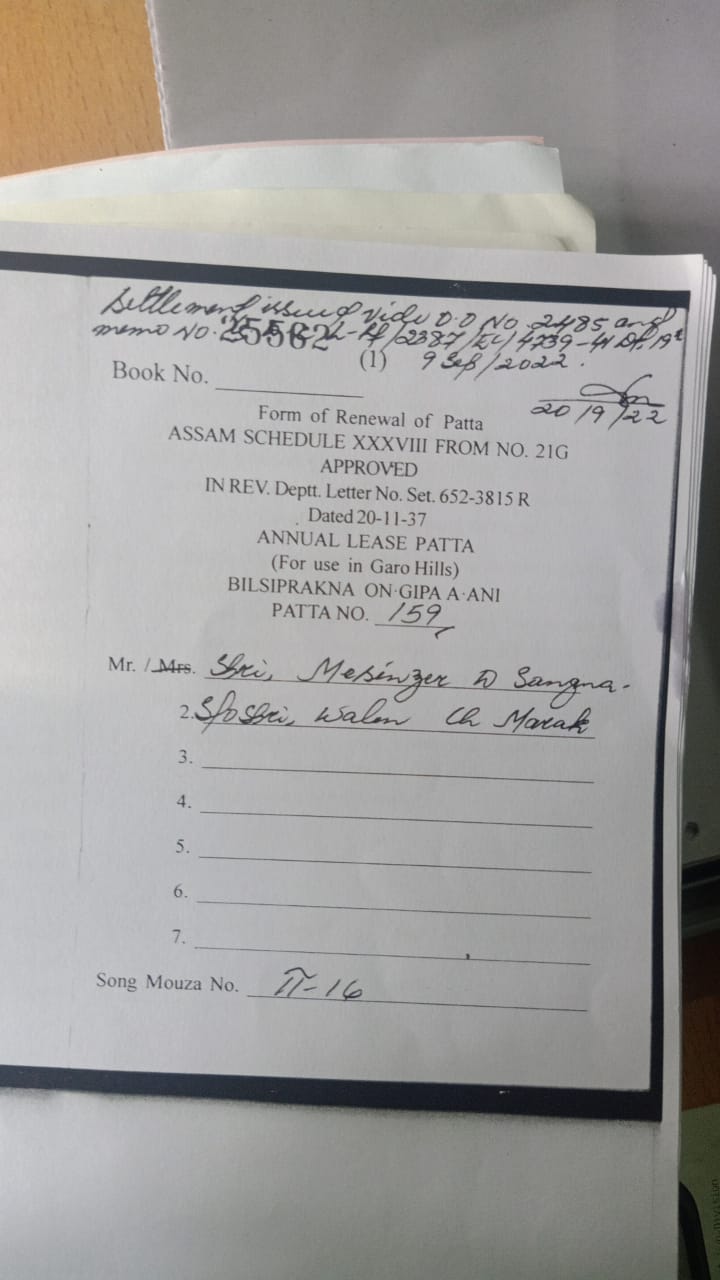 Settlement issued vide D.O No. 2485 and
memo NO. 25562 /2387/ /4739-41 Dt.
(1) 9 Sep/2022.
Book No.
20/9/22
Form of Renewal of Patta
ASSAM SCHEDULE XXXVIII FROM NO. 21G
APPROVED
IN REV. Deptt. Letter No. Set. 652-3815 R
Dated 20-11-37
ANNUAL LEASE PATTA
(For use in Garo Hills)
BILSIPRAKNA ON·GIPA A·ANI
PATTA NO. 159
Mr. / Mrs. Shri, Mesinzer D Sangma.
2. S/o Shri, Walen Ch Marak
3.
4.
5.
6.
7.
Song Mouza No. II-16